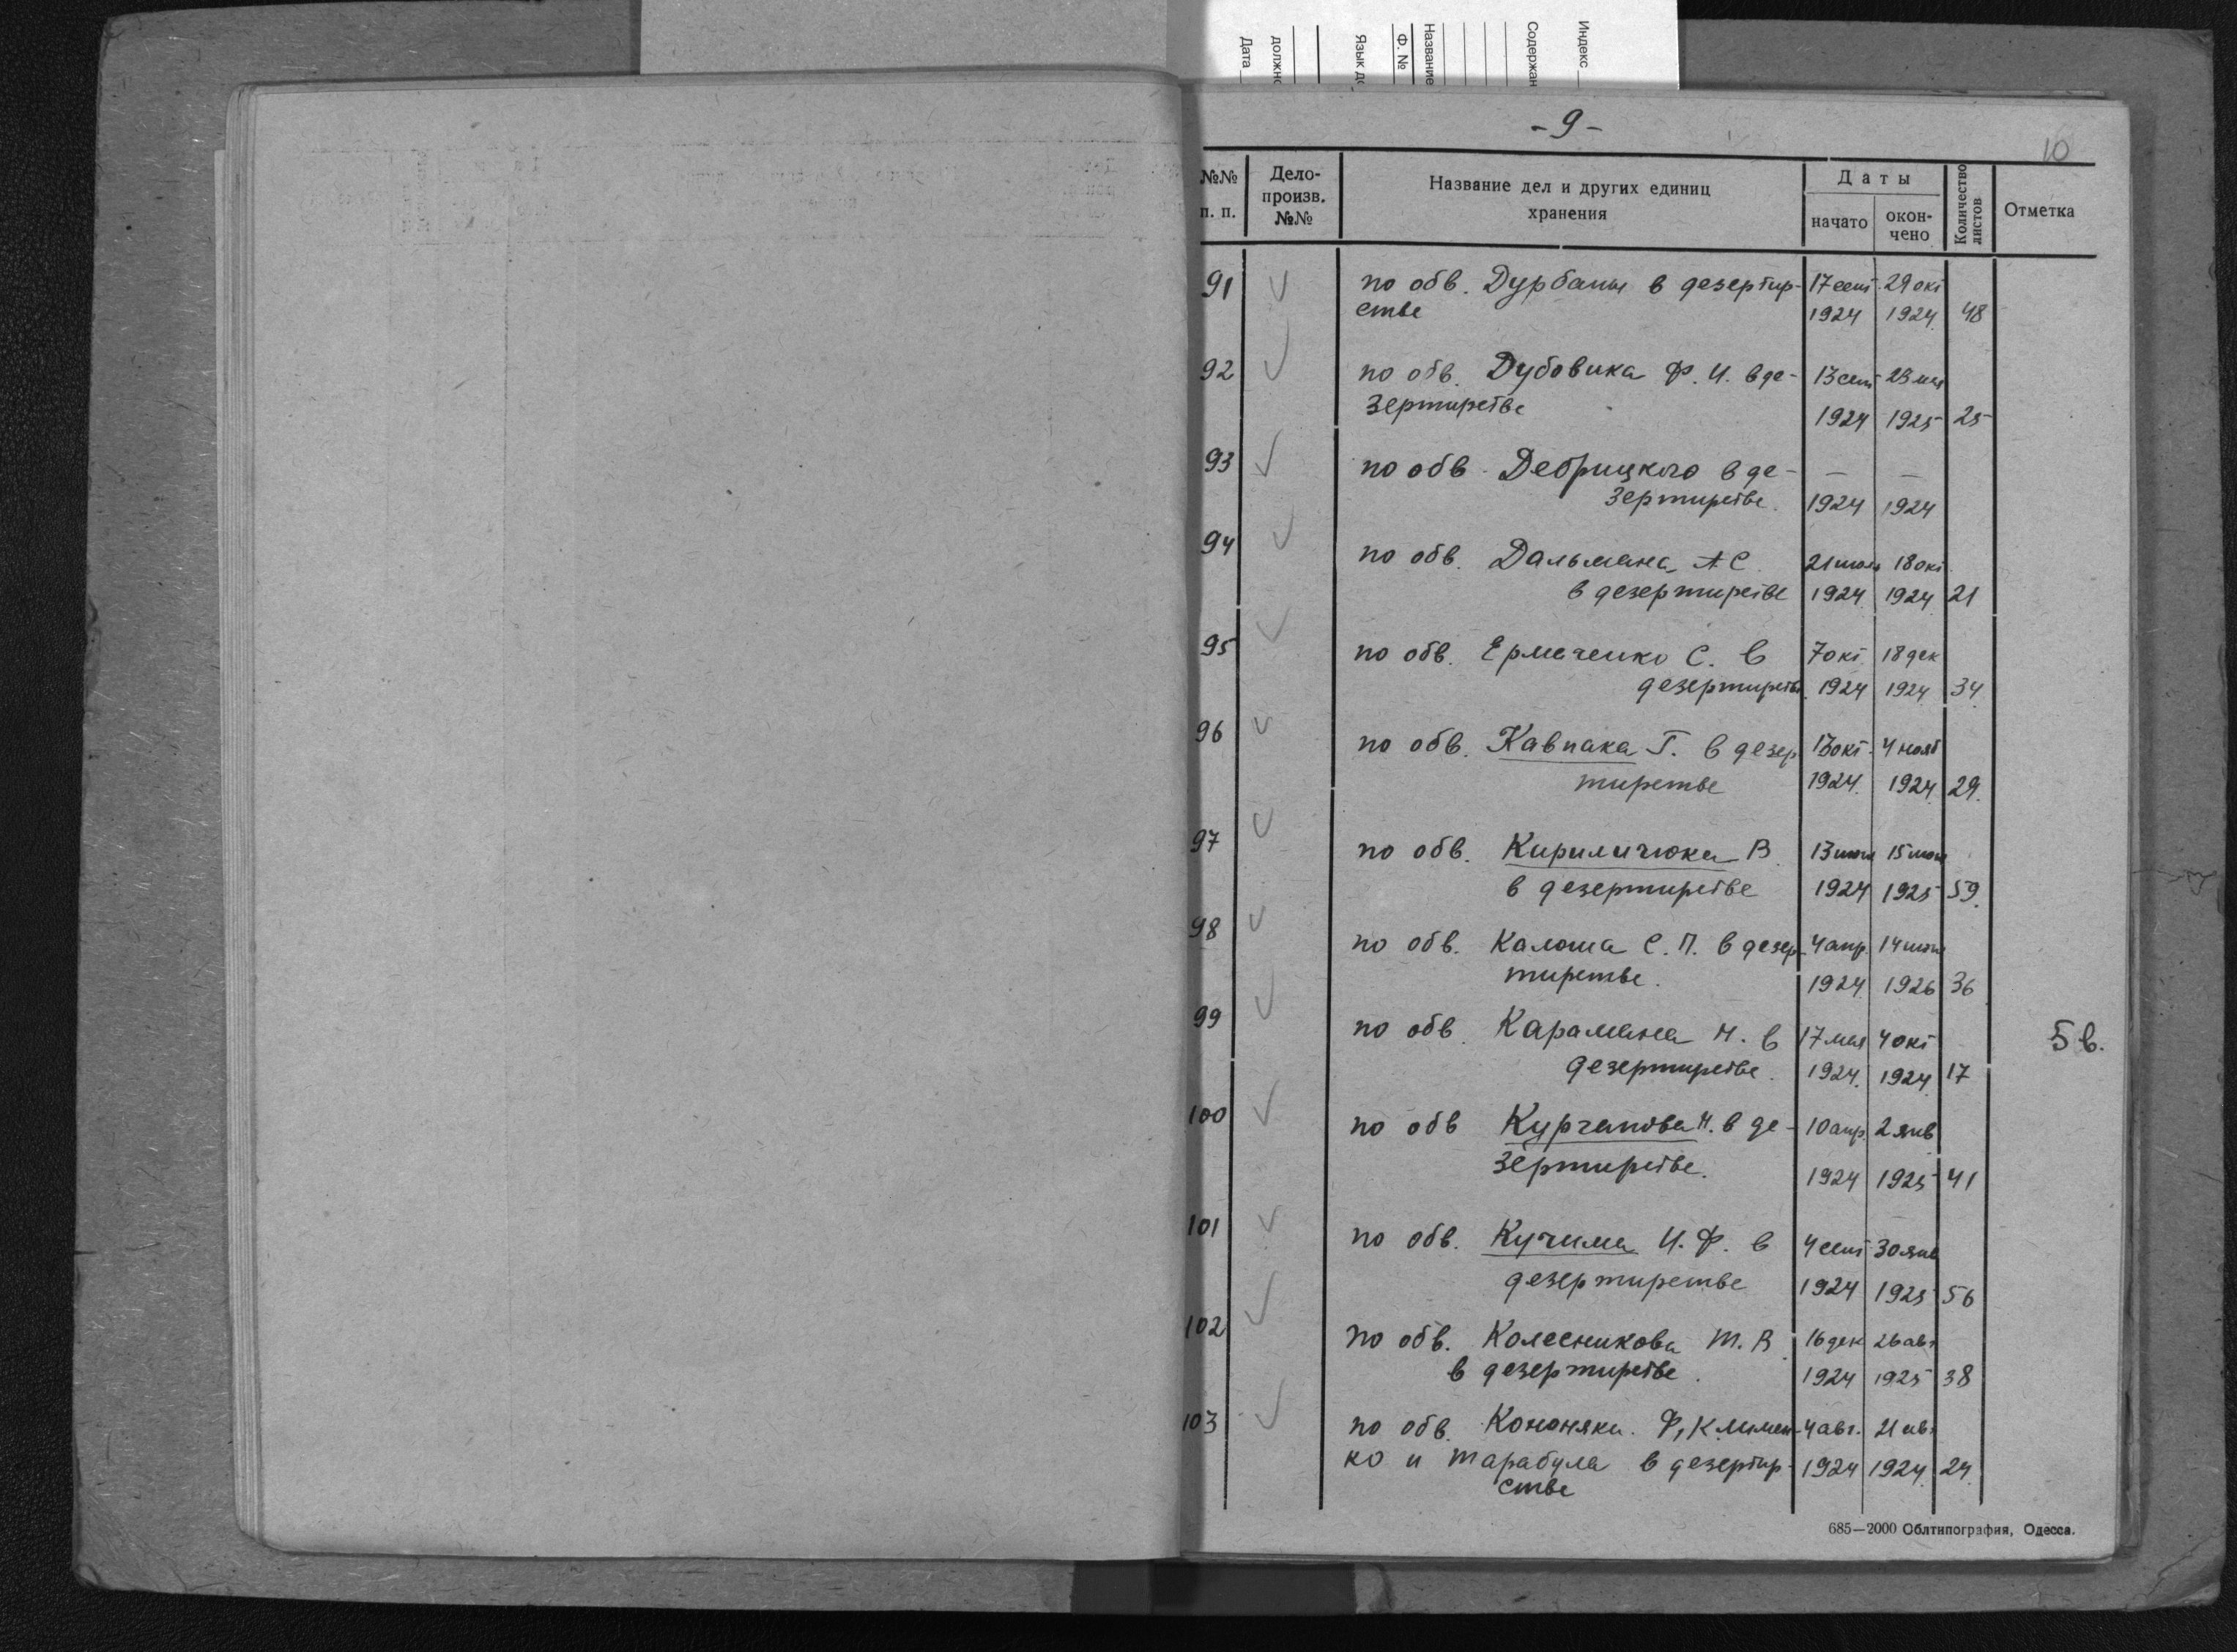 Индекс
Содержан
Название
Ф. №
Язык д
должн
Дата
- 9 -
10
№№ п. п.
Дело-произв. №№
Название дел и других единиц хранения
Даты
начато
окон-чено
Количество листов
Отметка
91 по обв. Дурбаны в дезертир- 17 сент 29 окт
стве 1924 1924 48
92 по обв. Дубовика Ф. И. в де- 13 сент 23 мая
зертирстве 1924 1925 25
93 по обв. Дебрицкого в де- — —
зертирстве. 1924 1924
94 по обв. Дальмана А С. 21 июля 18 окт.
в дезертирстве 1924 1924 21
95 по обв. Ермаченко С. в 7 окт. 18 дек
дезертирстве. 1924 1924 34
96 по обв. Кавпака Г. в дезер 13 окт. 4 нояб
тирстве 1924. 1924. 29.
97 по обв. Кириличюка В. 13 15
в дезертирстве 1924 1925 59.
98 по обв. Калоша С. П. в дезер- 4 апр. 14
тирстве. 1924. 1926 36
99 по обв. Карамана Н. в 17 мая 4 окт
дезертирстве. 1924. 1924 17
5 в.
100 по обв Курчатова Н. в де- 10 апр. 2 янв
зертирстве. 1924 1925 41
101 по обв. Кучима И. Ф. в 4 сент 30 янв
дезертирстве 1924 1925 56
102 по обв. Колесникова Т. В. 16 дек 26 авг
в дезертирстве. 1924 1925 38
103 по обв. Кононяки. Ф, Климен- 4 авг. 21 авг
ко и Тарабула в дезертир- 1924 1924. 24.
стве
685—2000 Облтипография, Одесса.